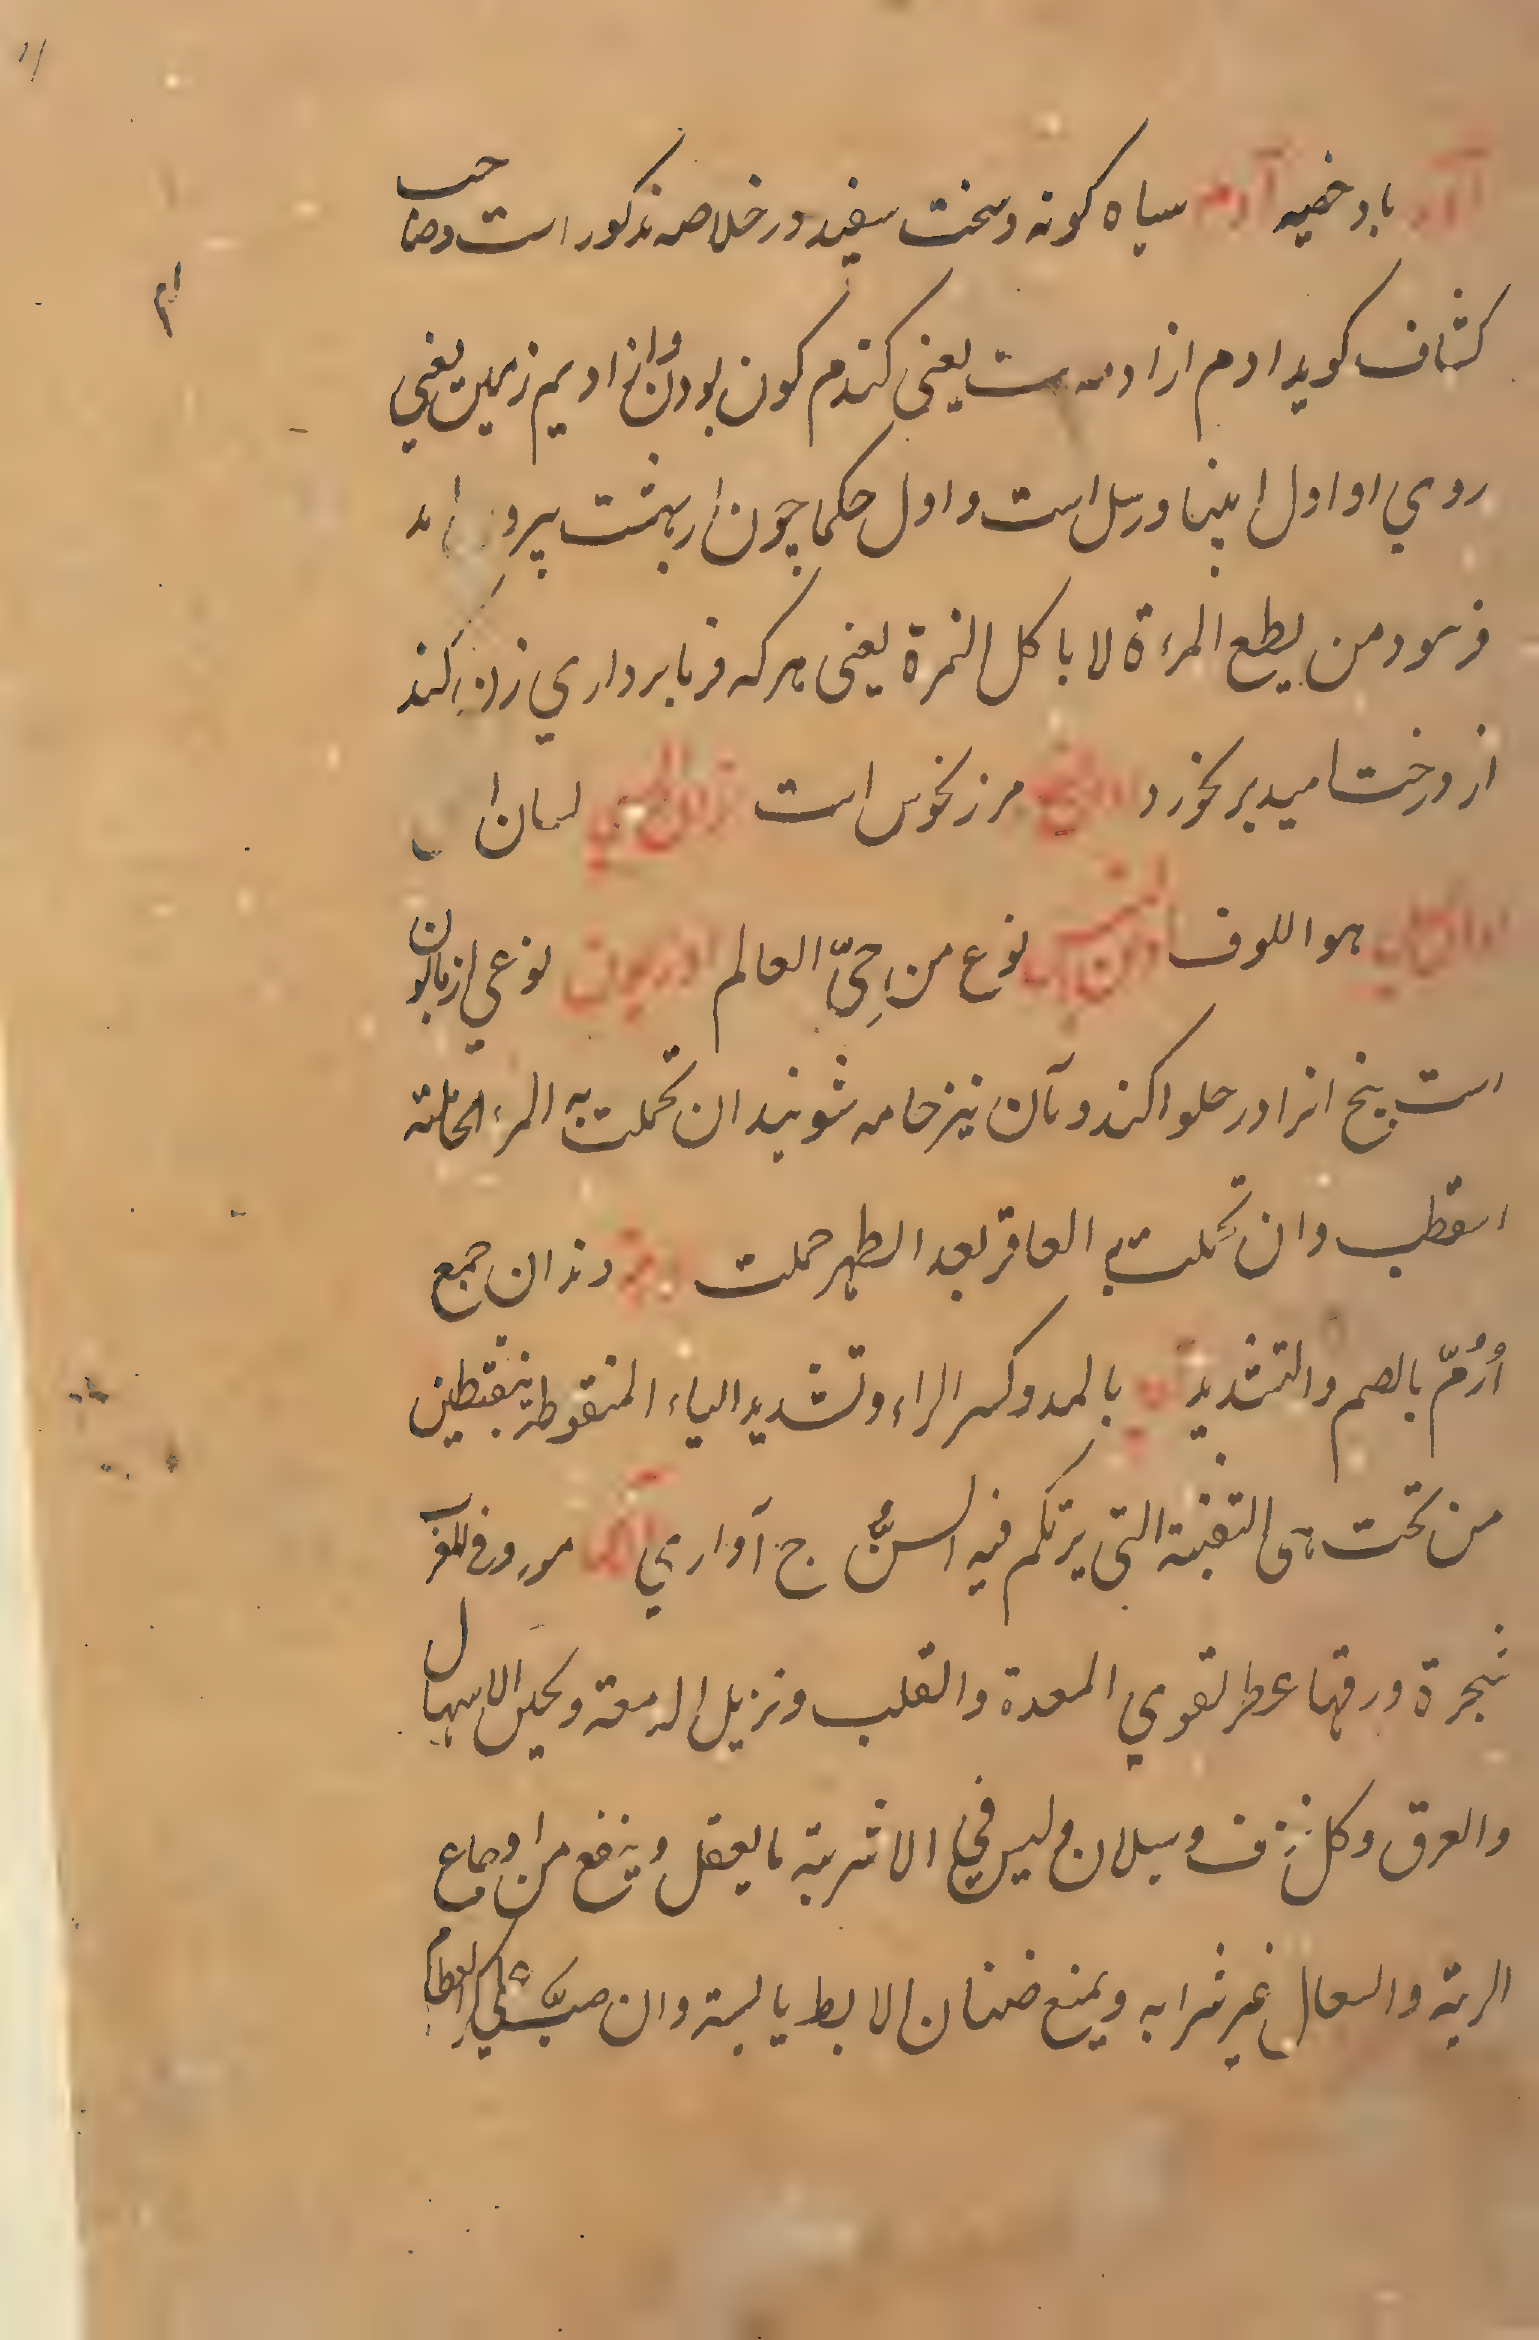 آدر باد خصیه آدم سیاه کونه و سخت سفید در خلاصه مذکور است و صاحب
کشاف کوید ادم از ادمه ست یعنی کندم کون بودن واز ادیم زمین یعنی
روي او اول انبیا و رسل است و اول حکما چون از بهشت بیرون امد
فرمود من یطع المرءة لا یاکل الثمرة یعنی هرکه فرمابرداري زن کند
از درخت امید بر نخورد مرزنخوش است لسان
هو اللوف نوع من حیّ العالم اذریون نوعي از بابون
است بیخ انرا در حلوا کنند و بآن نیز جامه شویند ان تحملت به المرء الحامله
اسقطب وان تحملت به العاقر بعد الطهر حملت دندان جمع
أُرُمّ بالضم والتشدید بالمد وکسر الراء وتشدید الیاء المنقوطة بنقطین
من تحت هی التي یرتکم فیه السنُّ ج آواري مورد وفی المغرب
شجرة ورقها عطر تقوي المعدة والقلب وتزیل الدمعة ویحبس الاسهال
والعرق وکل نزف وسیلان ولیس في الاشربة ما یعقل وینفع من اوجاع
الریة والسعال غیر شرابه ویمنع صنان الابط یابسه وان صبّ علی کسر العظام